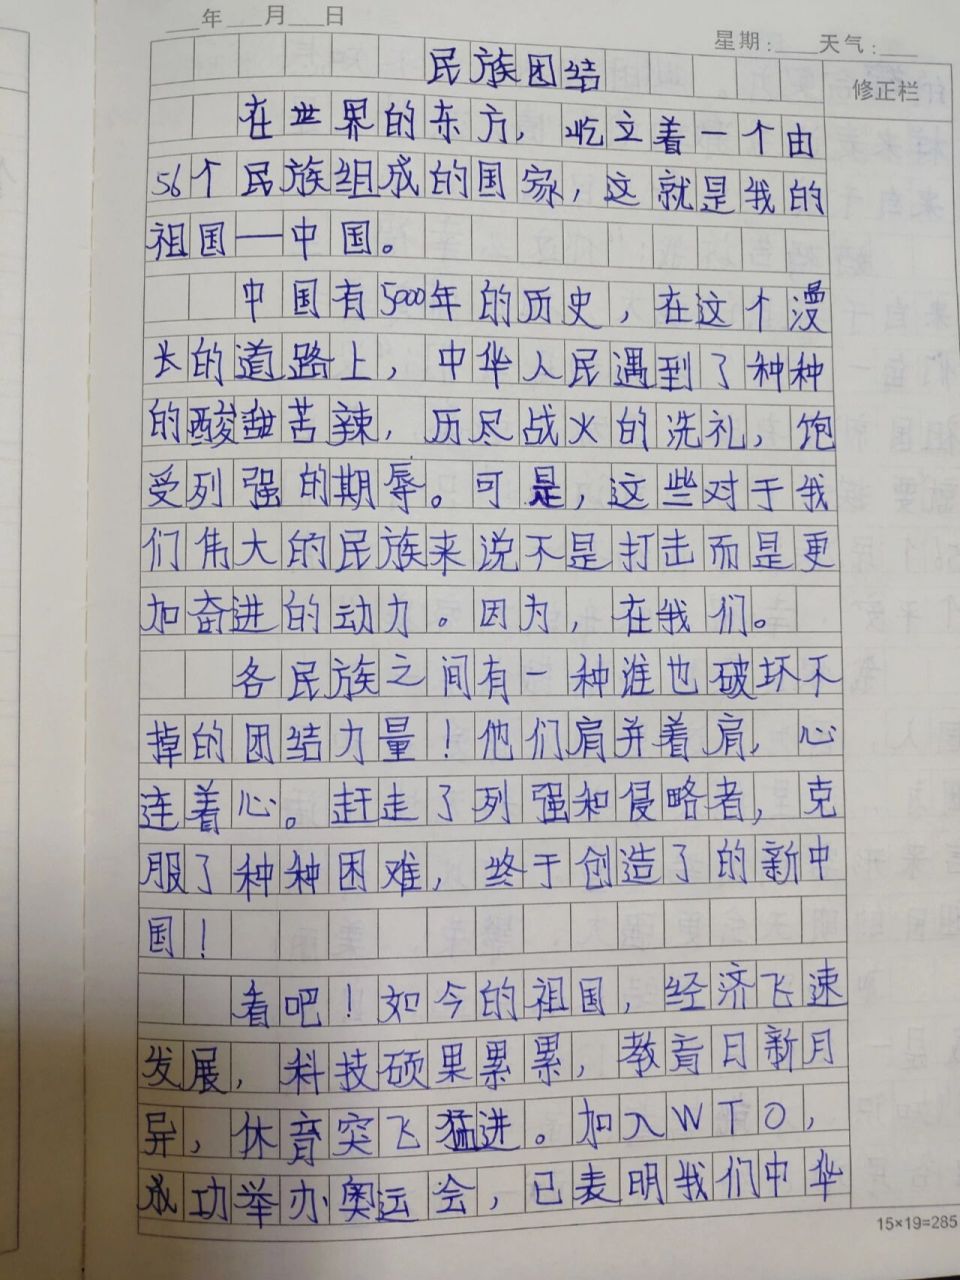 年 月 日
星期： 天气：
修正栏
民族团结
在世界的东方，屹立着一个由
56个民族组成的国家，这就是我的
祖国—中国。
中国有5000年的历史，在这个漫
长的道路上，中华人民遇到了种种
的酸甜苦辣，历尽战火的洗礼，饱
受列强的期辱。可是，这些对于我
们伟大的民族来说不是打击而是更
加奋进的动力。因为，在我们。
各民族之间有一种谁也破坏不
掉的团结力量！他们肩并着肩，心
连着心。赶走了列强和侵略者，克
服了种种困难，终于创造了的新中
国！
看吧！如今的祖国，经济飞速
发展，科技硕果累累，教育日新月
异，体育突飞猛进。加入WTO，
成功举办奥运会，已表明我们中华
15×19=285